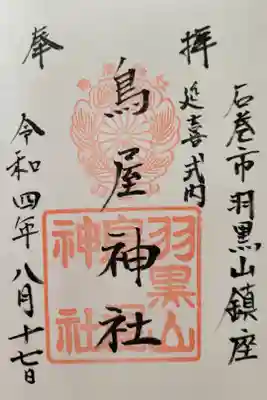 石巻市羽黒山鎮座
延喜式内
奉拝
鳥屋神社
羽黒山
神社
令和四年八月十七日